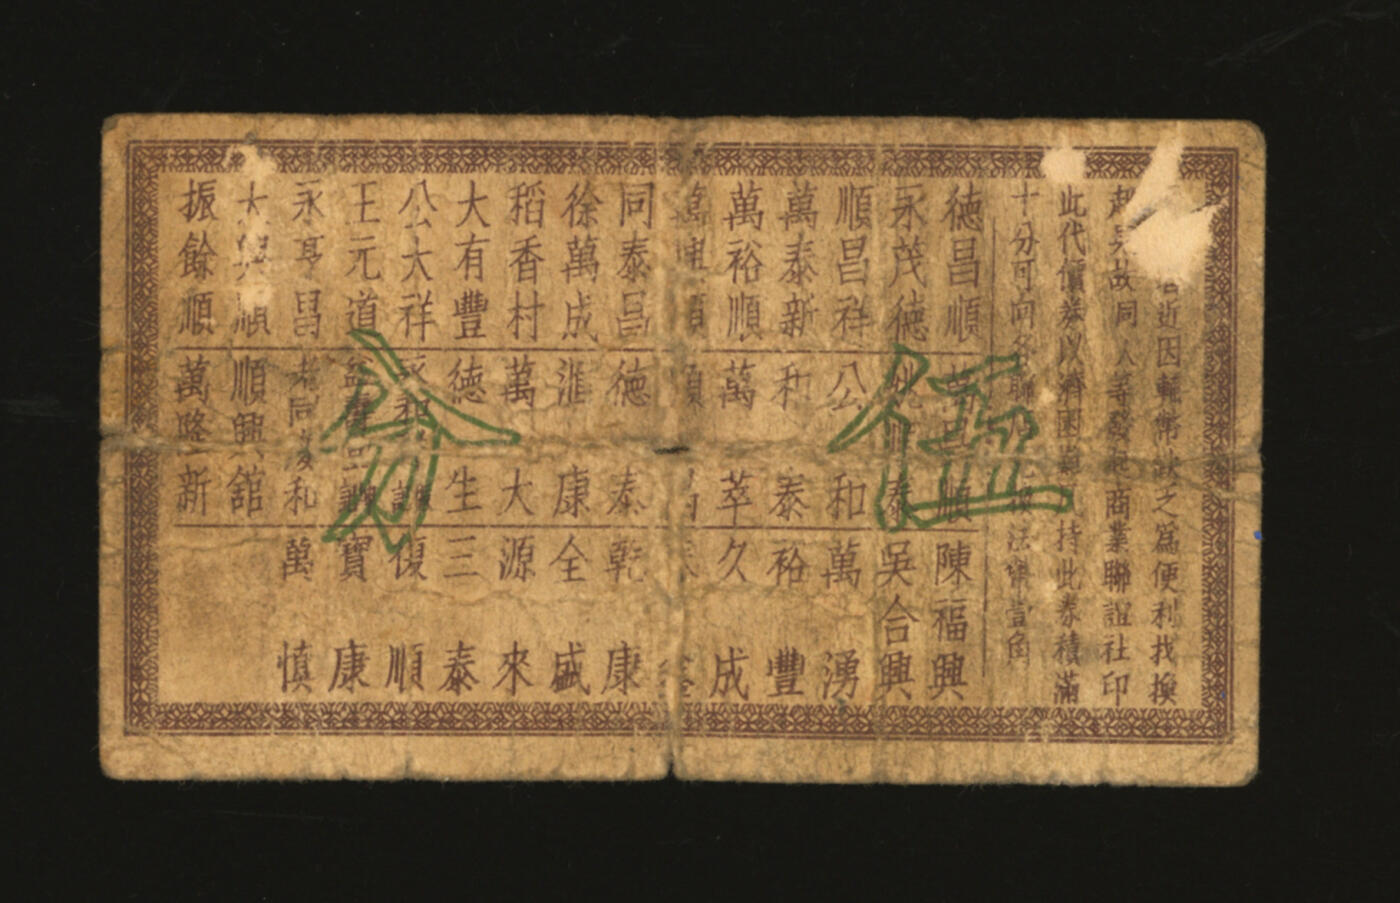 者近因輔幣缺之爲便利找換
起見故同人等發起商業聯誼社印
此代價券以濟困難持此券積滿
十分可向各聯法幣壹角
德昌順
永茂德
順昌祥
萬泰新
萬裕順
萬興順
同泰昌
徐萬成
稻香村
大有豐
公大祥
王元道
永亨昌
大興順
振餘順
萬昌順
泰
公和
和泰
萬萃
順
德泰
滙康
萬大
德生
永和
老同茂和
順興舘
萬隆新
陳福興
吳合興
萬湧
裕豐
久成
乾康
全盛
源來
三泰
復順
寶康
萬慎
壹分